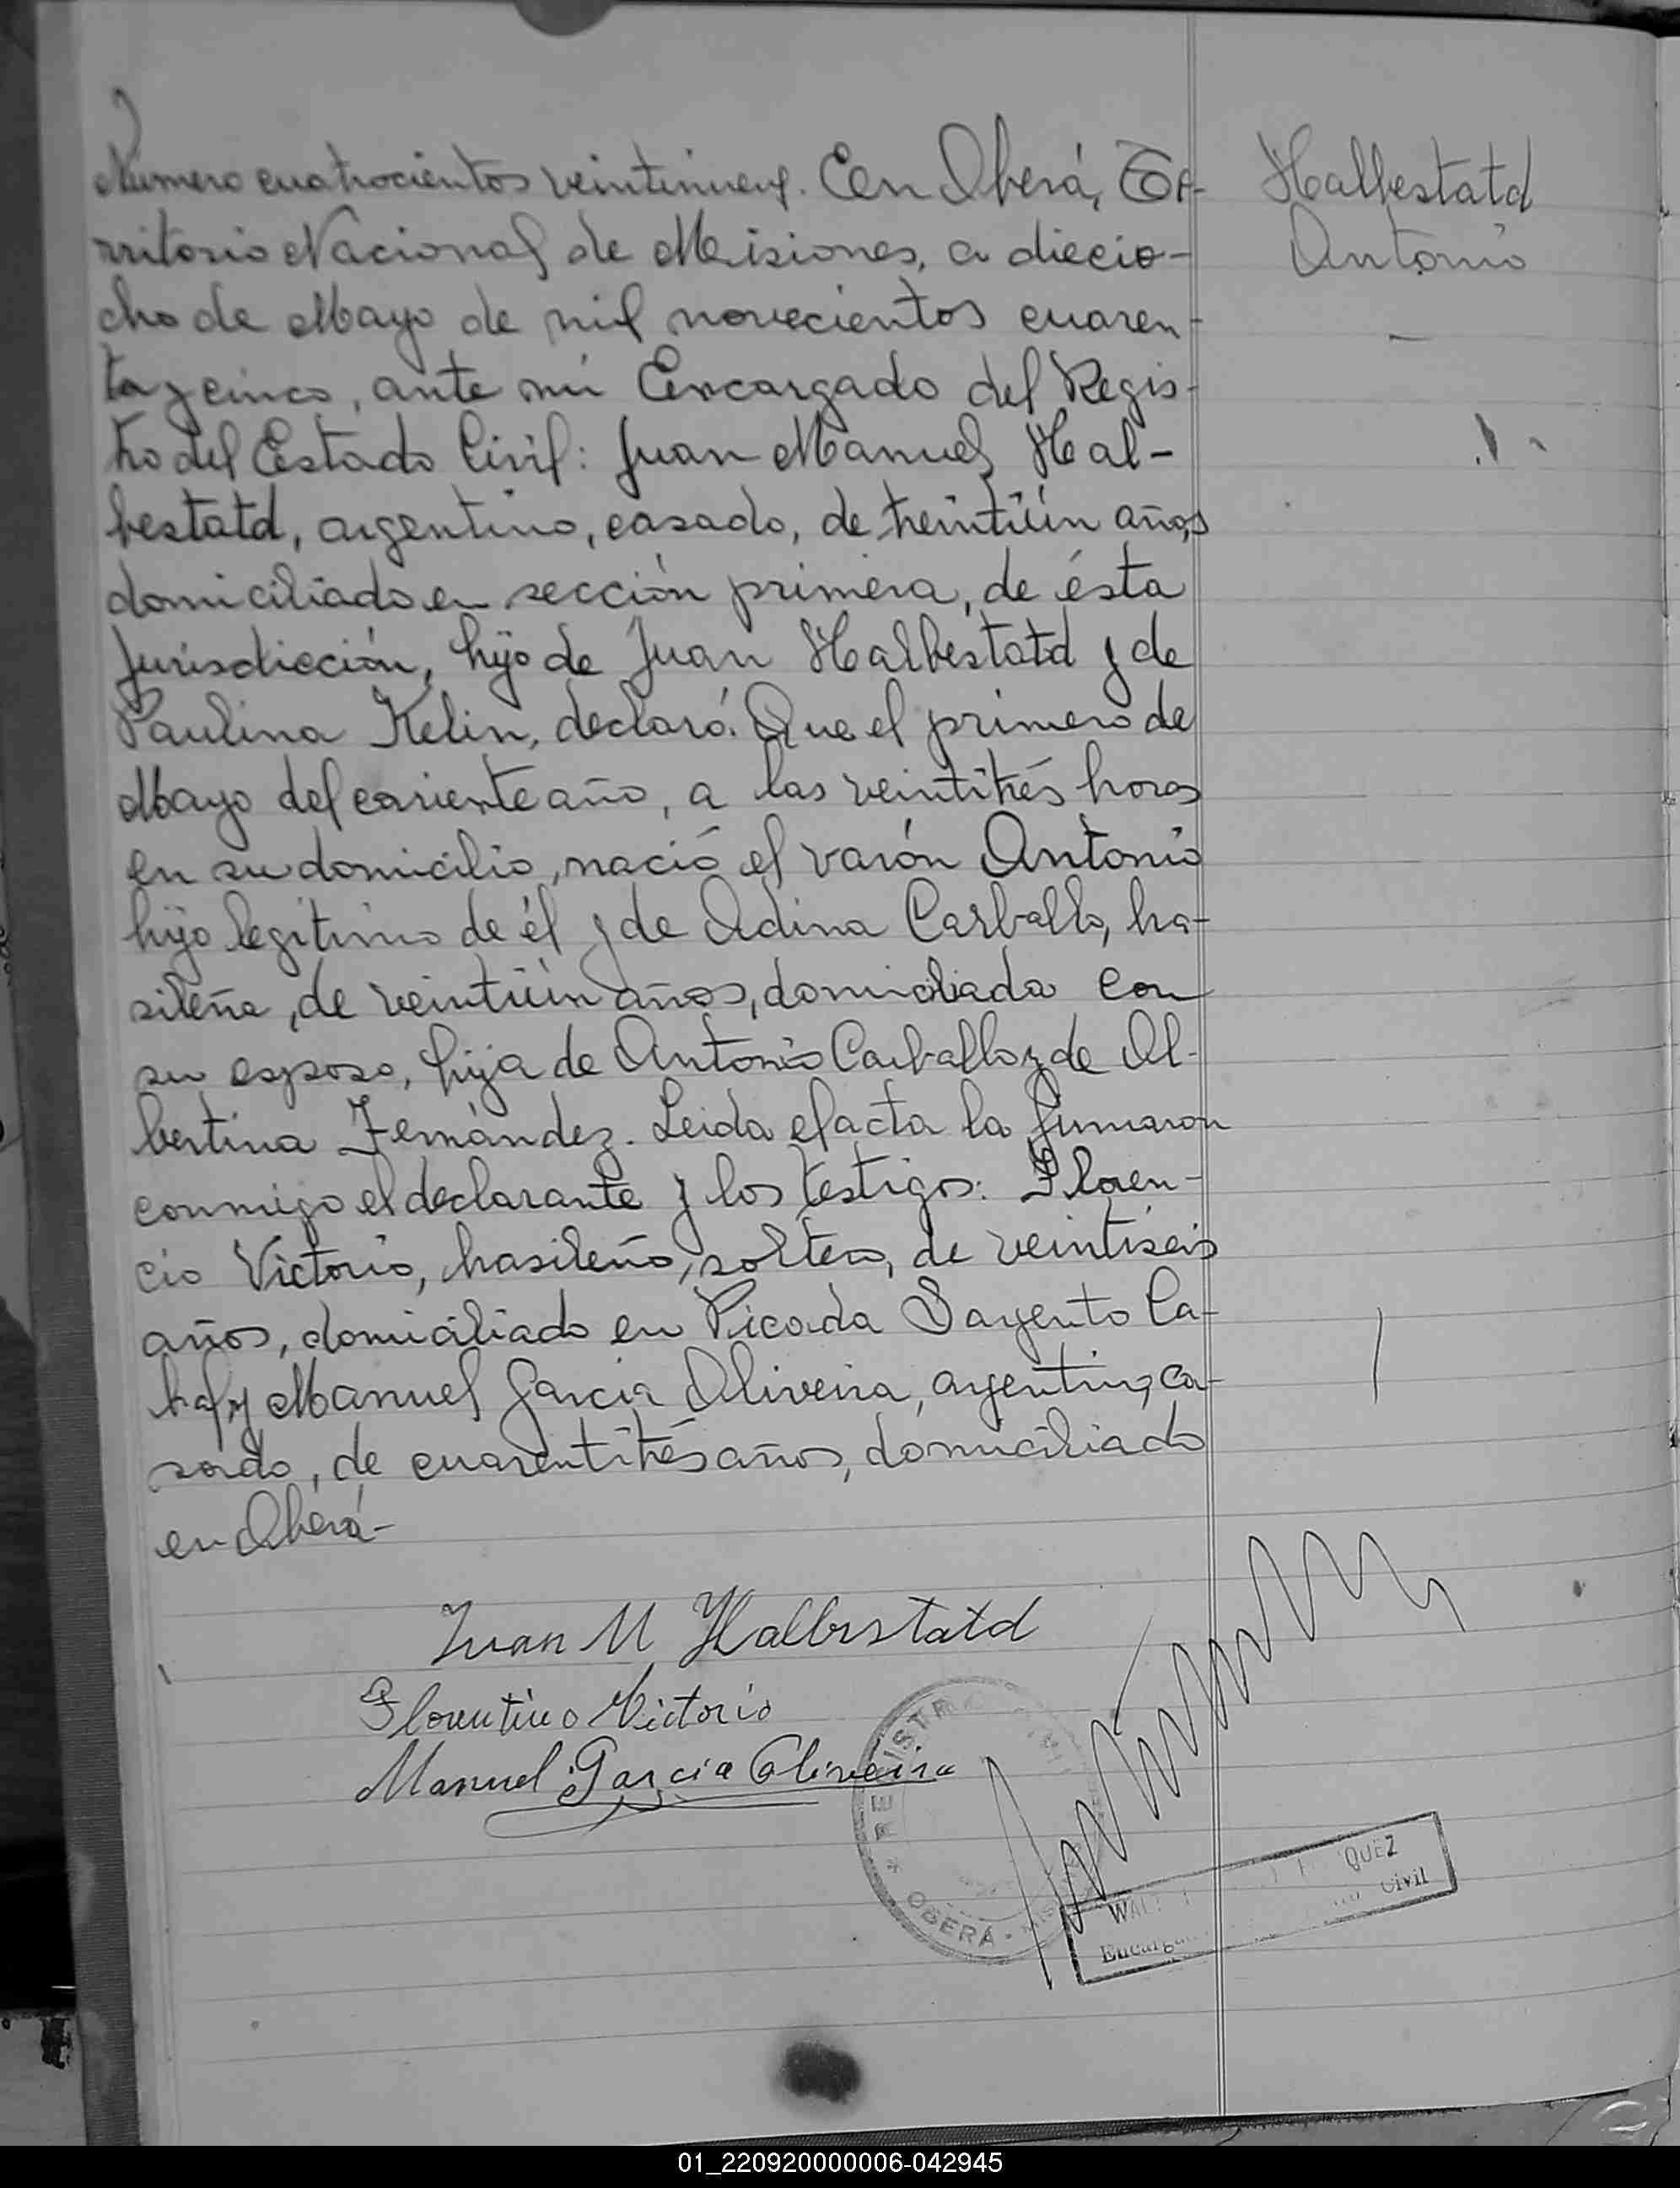 Halbestatd
Antonio
Número cuatrocientos veintinueve. En Oberá, Te-
rritorio Nacional de Misiones, a diecio-
cho de Mayo de mil novecientos cuaren-
ta y cinco, ante mi Encargado del Regis-
tro del Estado Civil: Juan Manuel Hal-
bestatd, argentino, casado, de treintiún años
domiciliado en sección primera, de ésta
Jurisdicción, hijo de Juan Halbestatd y de
Paulina Kelin, declaró: Que el primero de
Mayo del coriente año, a las veintitrés horas
en su domicilio, nació el varón Antonio
hijo legítimo de él y de Adina Carballo, bra-
sileña, de veintiún años, domiciliada con
su esposo, hija de Antonio Carballo y de Al-
bertina Fernández. Leida el acta la firmaron
conmigo el declarante y los testigos: Floren-
cio Victorio, brasileño, soltero, de veintiséis
años, domiciliado en Picada Sargento Ca-
bral y Manuel Garcia Oliveira, argentino, ca-
sado, de cuarentitrés años, domiciliado
en Oberá-
Juan M Halbestatd
Florentino Victorio
Manuel Garcia Oliveira
REGISTRO CIVIL
* OBERÁ -
QUEZ
Civil
01_220920000006-042945